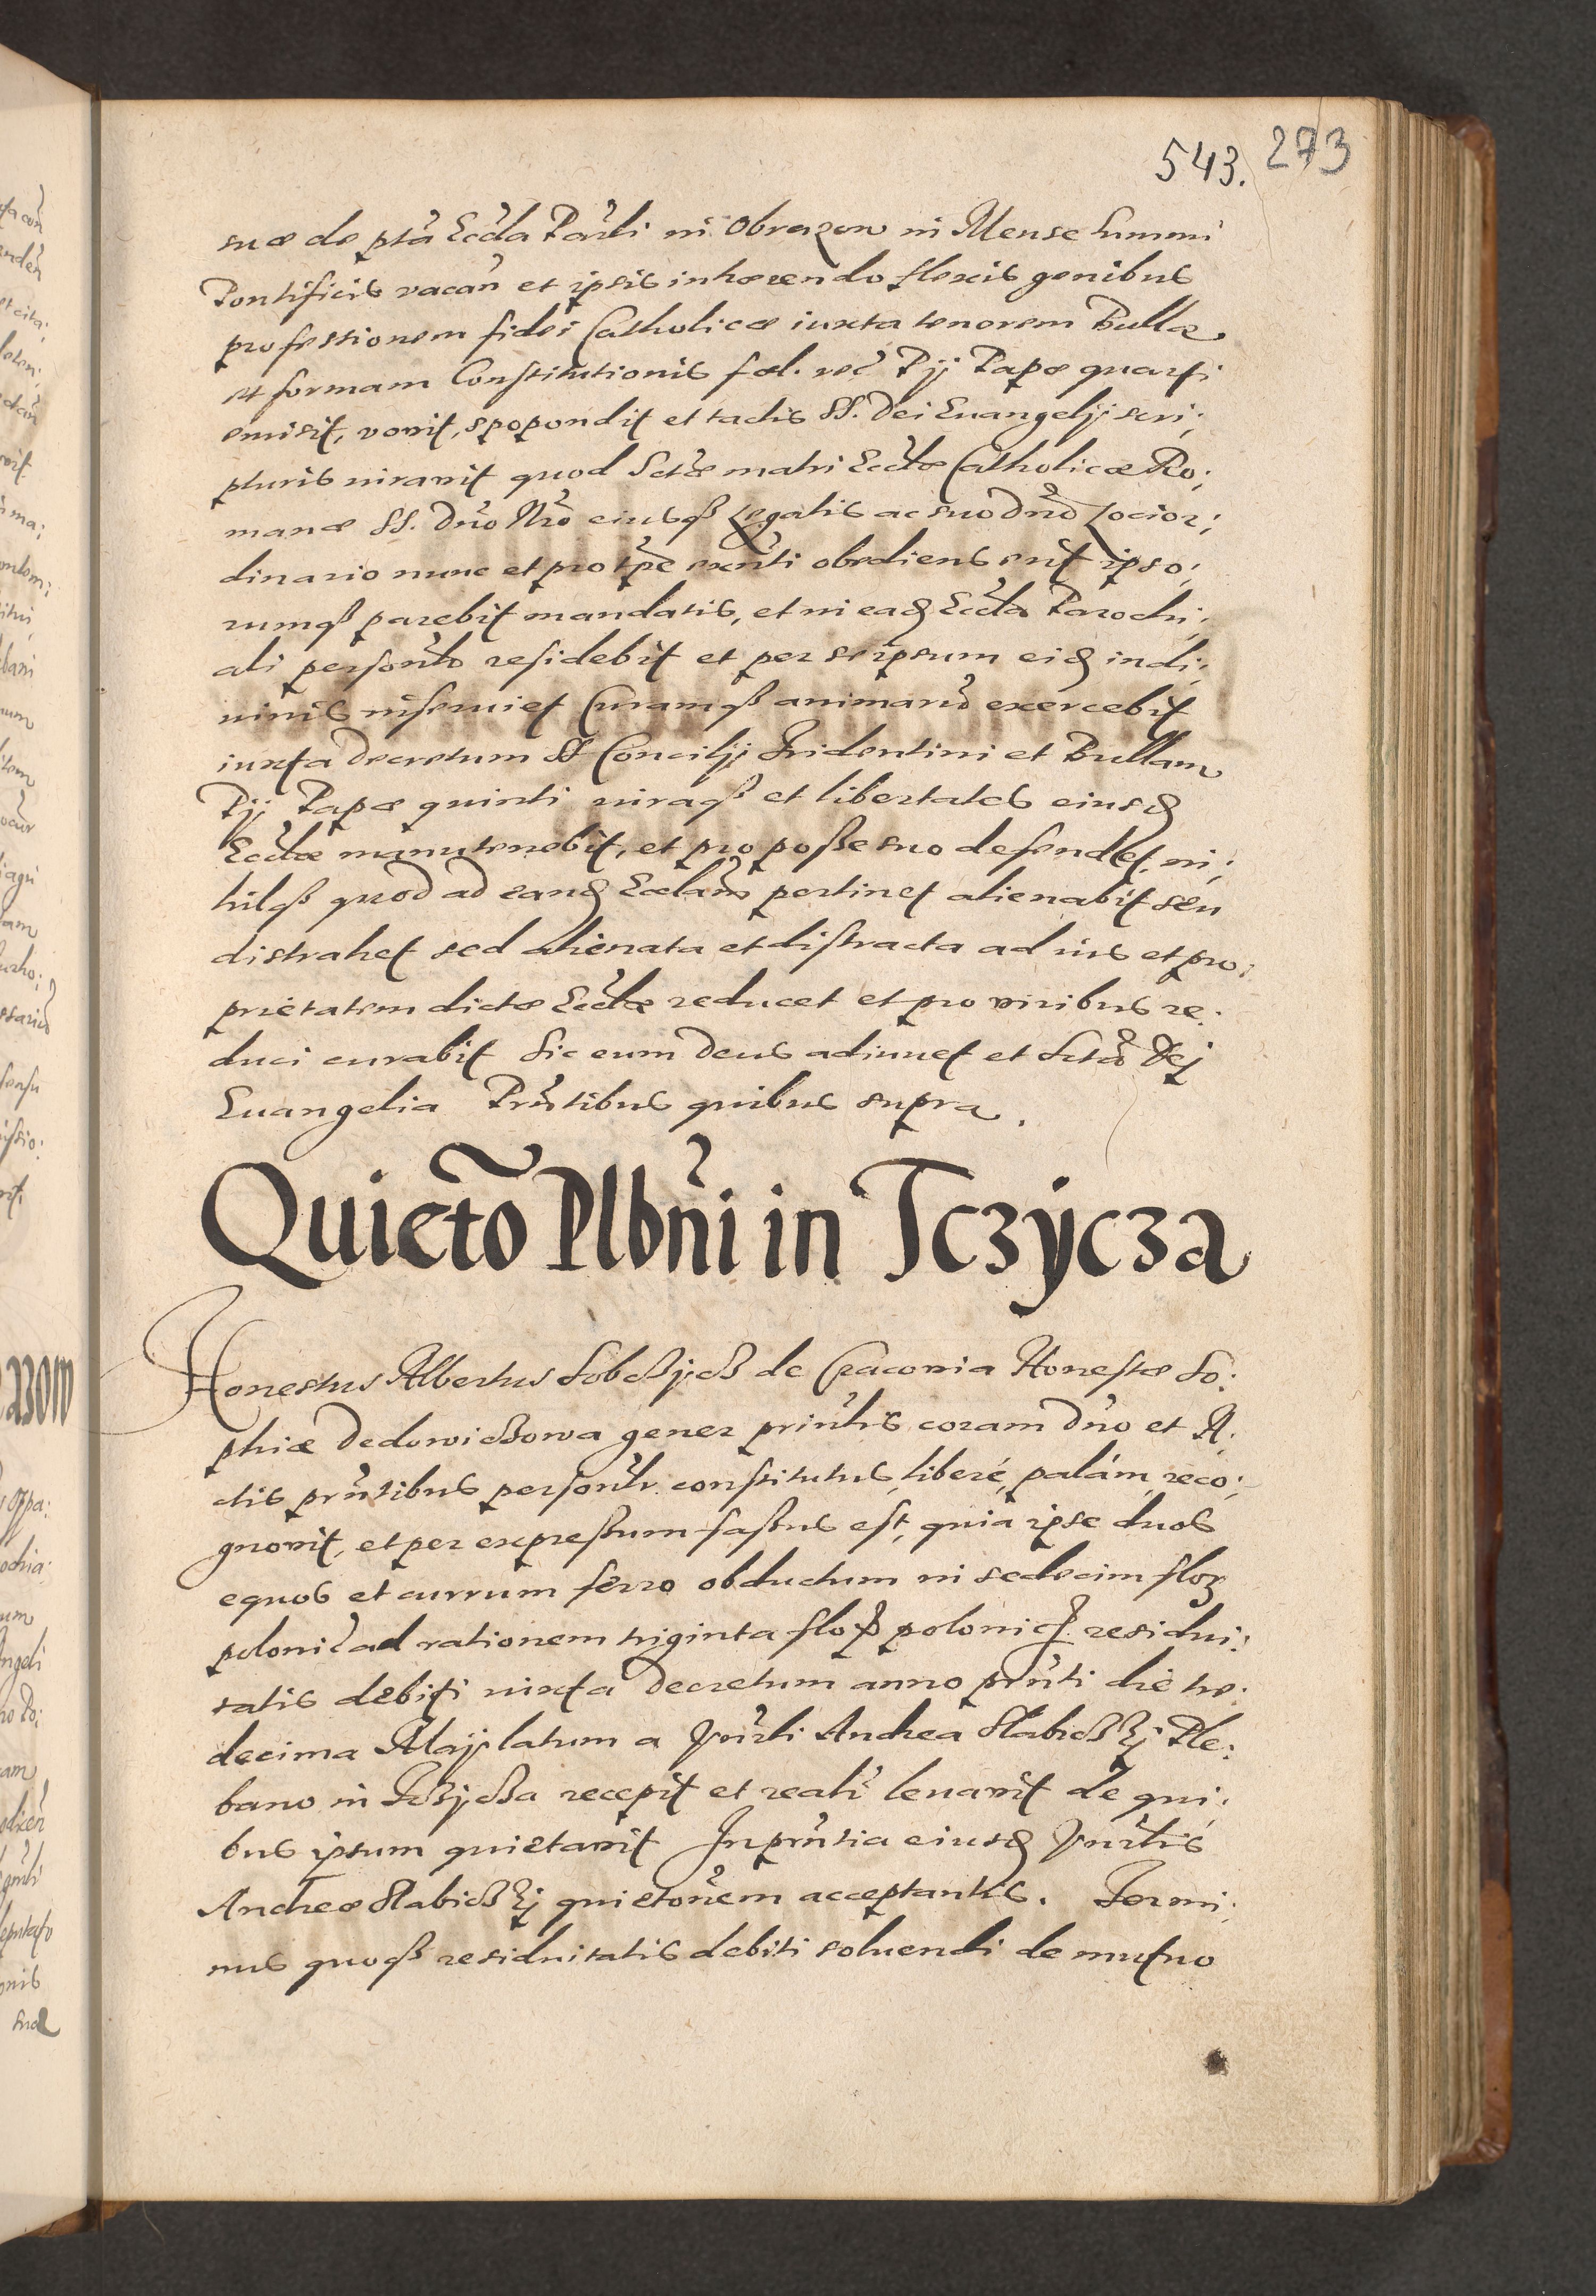 543. 273
suæ de pta Eccla Parli in Obrazow in Mense Summi
Pontificis vacan et ipsis inhærendo flexis genibus
professionem fidei Catholicæ iuxta tenorem Bullæ
et formam Constitutionis fæl. rec Pij Papæ quarti
emisit, vovit, spopondit et tactis SS. Dei Euangelij scri;
pturis iuravit quod Sctæ matri Ecclæ Catholicæ Ro;
manæ SS. Dno Nro eiusqß Legatis ac suo Dno Loci or;
dinario nunc et pro tpe exnti obediens erit ipso;
rumqß parebit mandatis, et in ead Eccla Parochi;
ali personlr residebit et per seipsum eid in di;
uinis inseruiet Curamqß animaru exercebit
iuxta Decretum SS Concilij Tridentini et Bullam
Pij Papæ quinti iuraqß et libertates eiusd
Ecclæ manutenebit, et pro posse suo defendet, ni;
hilqß quod ad eand Ecclam pertinet alienabit seu
distrahet sed alienata et distracta ad ius et pro;
prietatem dictæ Ecclæ reducet et pro viribus re;
duci curabit Sic eum Deus adiuuet et Scta Dej
Euangelia Prntibus quibus supra.
Quieto Plbni in Tczÿcza
Honestus Albertus de Cracovia Honestæ So;
phiæ gener prinlis coram Dno et A;
ctis prntibus personlr constitutus, liberé, palám, reco;
gnovit, et per expressum fassus est, quia ipse duos
equos et currum ferro obductum in sedecim flor
polonic ad rationem triginta flor polonic residui;
tatis debiti iuxta Decretum anno prnti die tre;
decima Maij latum a Vnrli Andrea Ple;
bano in Tczycza recepit et realr leuavit de qui;
bus ipsum quietavit In prntia eiusd Vnrlis
Andreæ quietonem acceptantis. Termi;
nus quoqß residuitatis debiti soluendi de mutuo